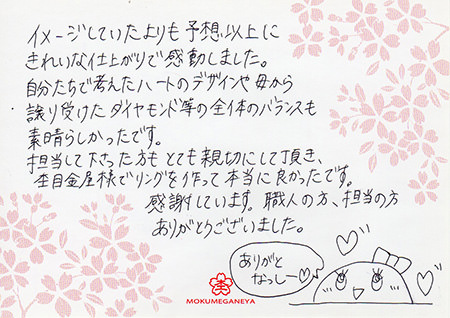 イメージしていたよりも予想以上に
きれいな仕上がりで感動しました。
自分たちで考えたハートのデザインや母から
譲り受けたダイヤモンド等の全体のバランスも
素晴らしかったです。
担当して下さった方もとても親切にして頂き、
杢目金屋様でリングを作って本当に良かったです。
感謝しています。職人の方、担当の方
ありがとうございました。
ありがと
なっしー♡
MOKUMEGANEYA